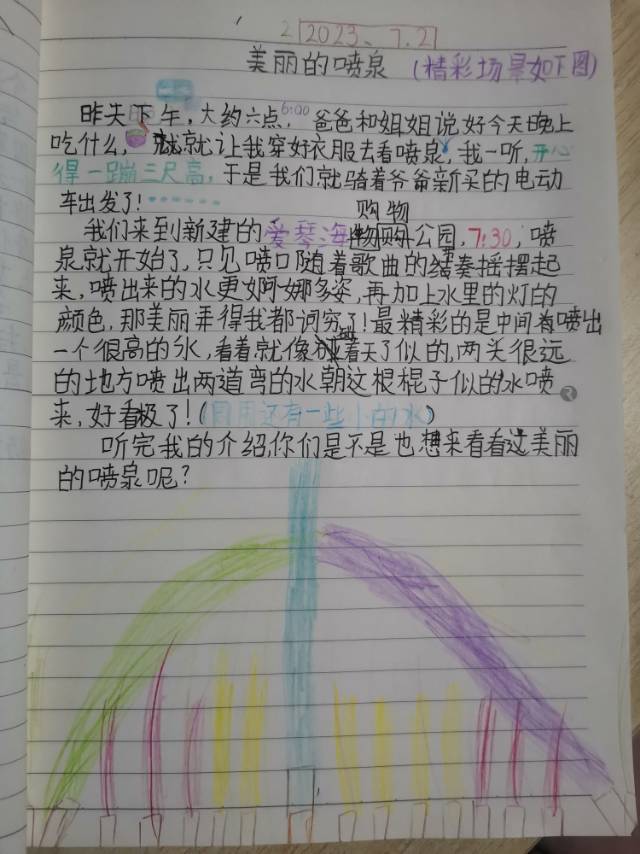 2 2023、7.2
美丽的喷泉 (精彩场景如下图)
昨天下午,大约六点,6:00 爸爸和姐姐说好今天晚上
吃什么,就让我穿好衣服去看喷泉,我一听,开心
得一蹦三尺高,于是我们就骑着爷爷新买的电动
车出发了!
购物
我们来到新建的爱琴海公园,7:30,喷
泉就开始了,只见喷口随着歌曲的节奏摇摆起
来,喷出来的水更婀娜多姿,再加上水里的灯的
颜色,那美丽弄得我都词穷了!最精彩的是中间有喷出
一个很高的水,看着就像着天了似的,两头很远
的地方喷出两道弯的水朝这根棍子似的水喷
来,好看极了!(周围还有一些小的水)
听完我的介绍,你们是不是也想来看看这美丽
的喷泉呢?